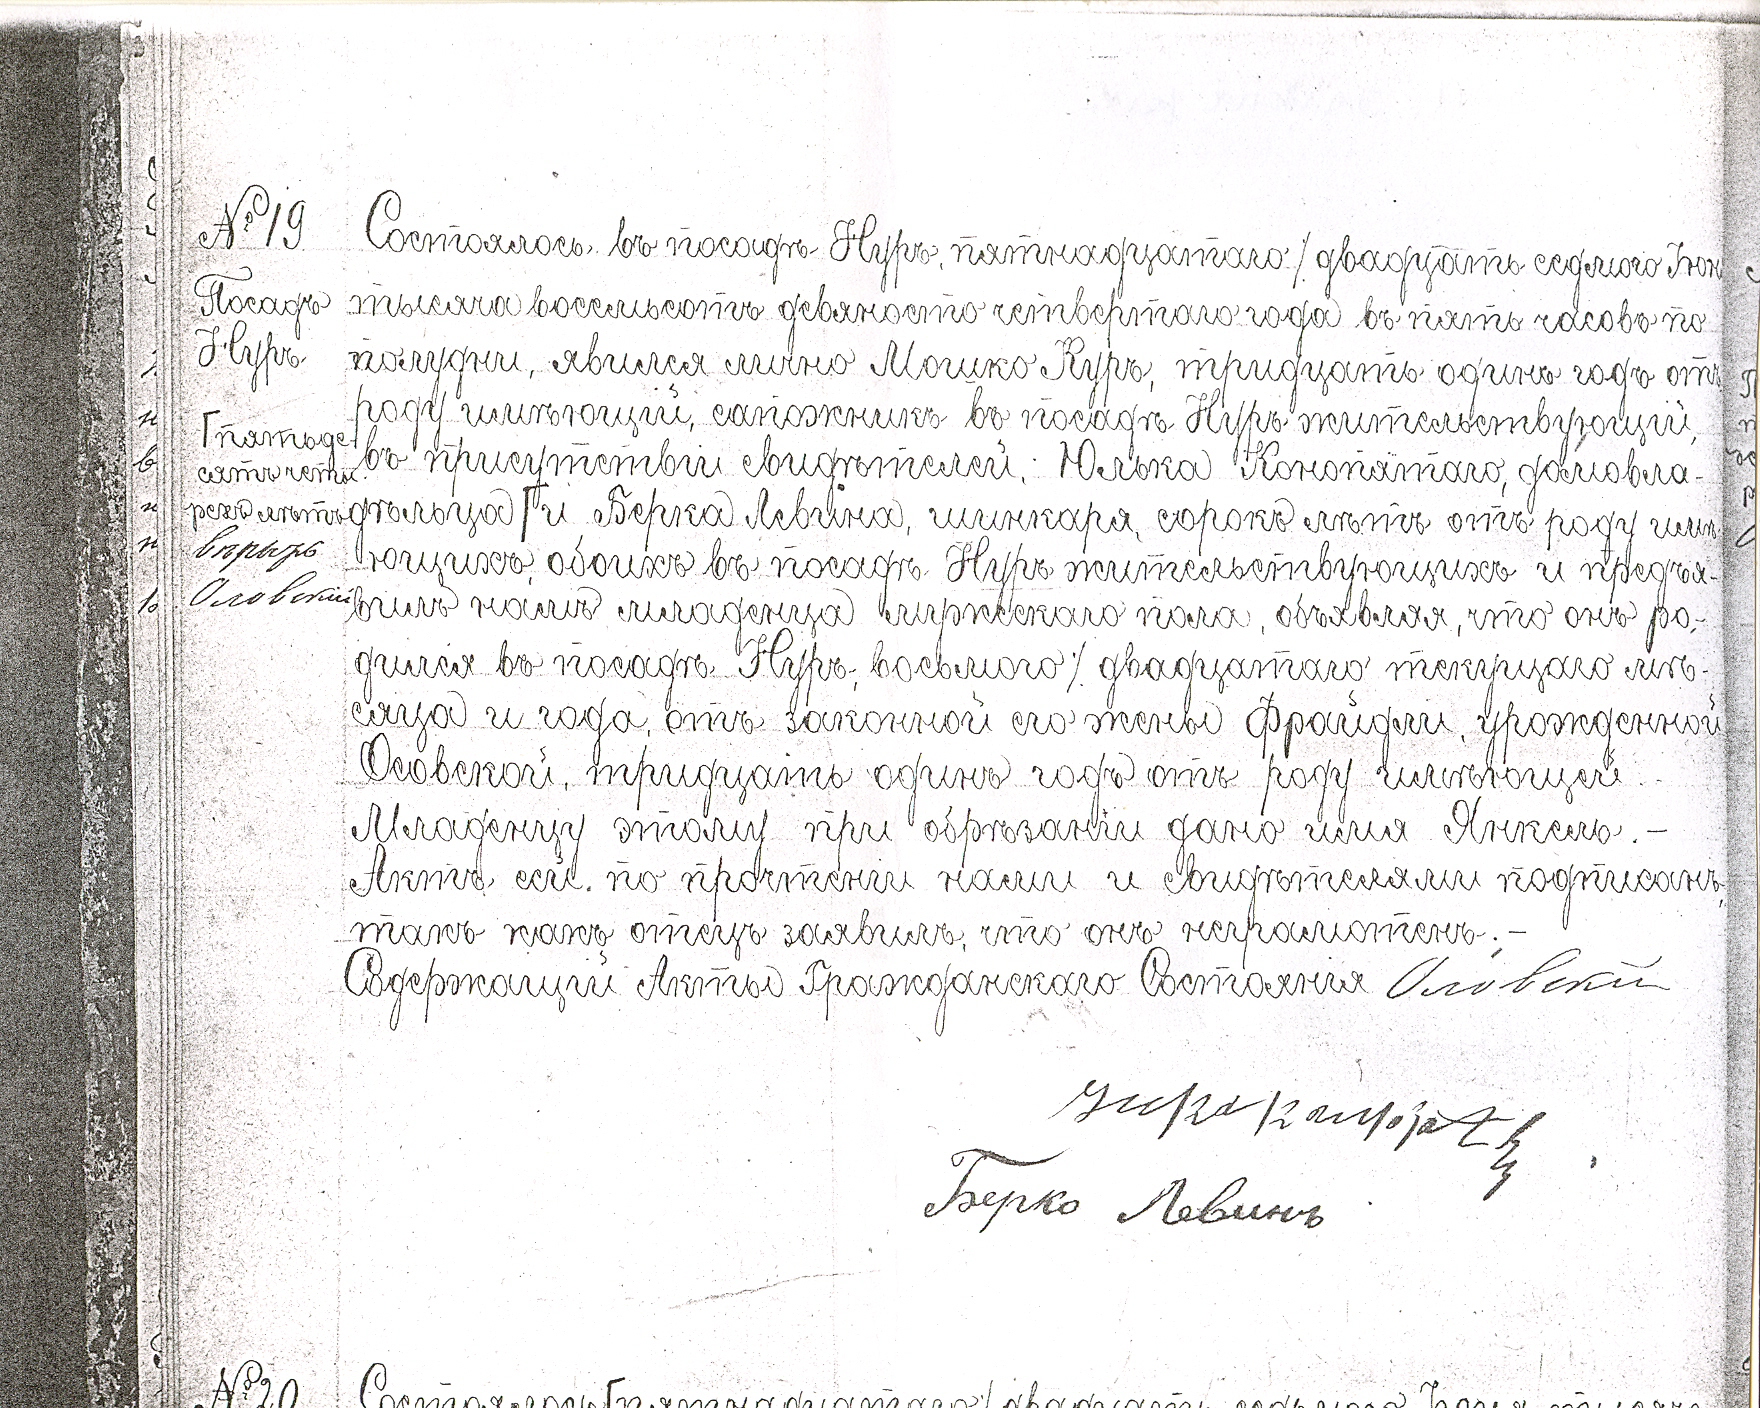 № 19
Посадъ
Нуръ
Состоялось въ посадѣ Нуръ, пятнадцатаго / двадцать седмого Іюн
тысяча восемьсотъ девяносто четвертаго года въ пять часовъ по
полудни, явился лично Мошко Куръ, тридцать одинъ годъ отъ
роду имѣющій, сапожникъ въ посадѣ Нуръ жительствующій,
въ присутствіи свидѣтелей: Юлька Конопятаго, домовла-
дѣльца Г и Берка Левина, шинкаря, сорокъ лѣтъ отъ роду имѣ-
ющихъ, обоихъ въ посадѣ Нуръ жительствующихъ и предъя-
вилъ намъ младенца мужескаго пола, объявляя, что онъ ро-
дился въ посадѣ Нуръ, восьмого / двадцатаго текущаго мѣ-
сяца и года, отъ законной его жены Фрайдли, урожденной
Осовской, тридцать одинъ годъ отъ роду имѣющей.
Младенцу этому при обрѣзаніи дано имя Янкель. -
Актъ сей по прочтеніи нами и свидѣтелями подписанъ,
такъ какъ отецъ заявилъ, что онъ неграмотенъ. -
Содержащій Акты Гражданскаго Состоянія Оловскій
Г пятьде-
сятъ четы-
рехъ лѣтъ
вѣрно
Оловскій
Берко Левинъ
№ 20
Состоялось пятнадцатаго / двадцать седьмого Іюня тысяча